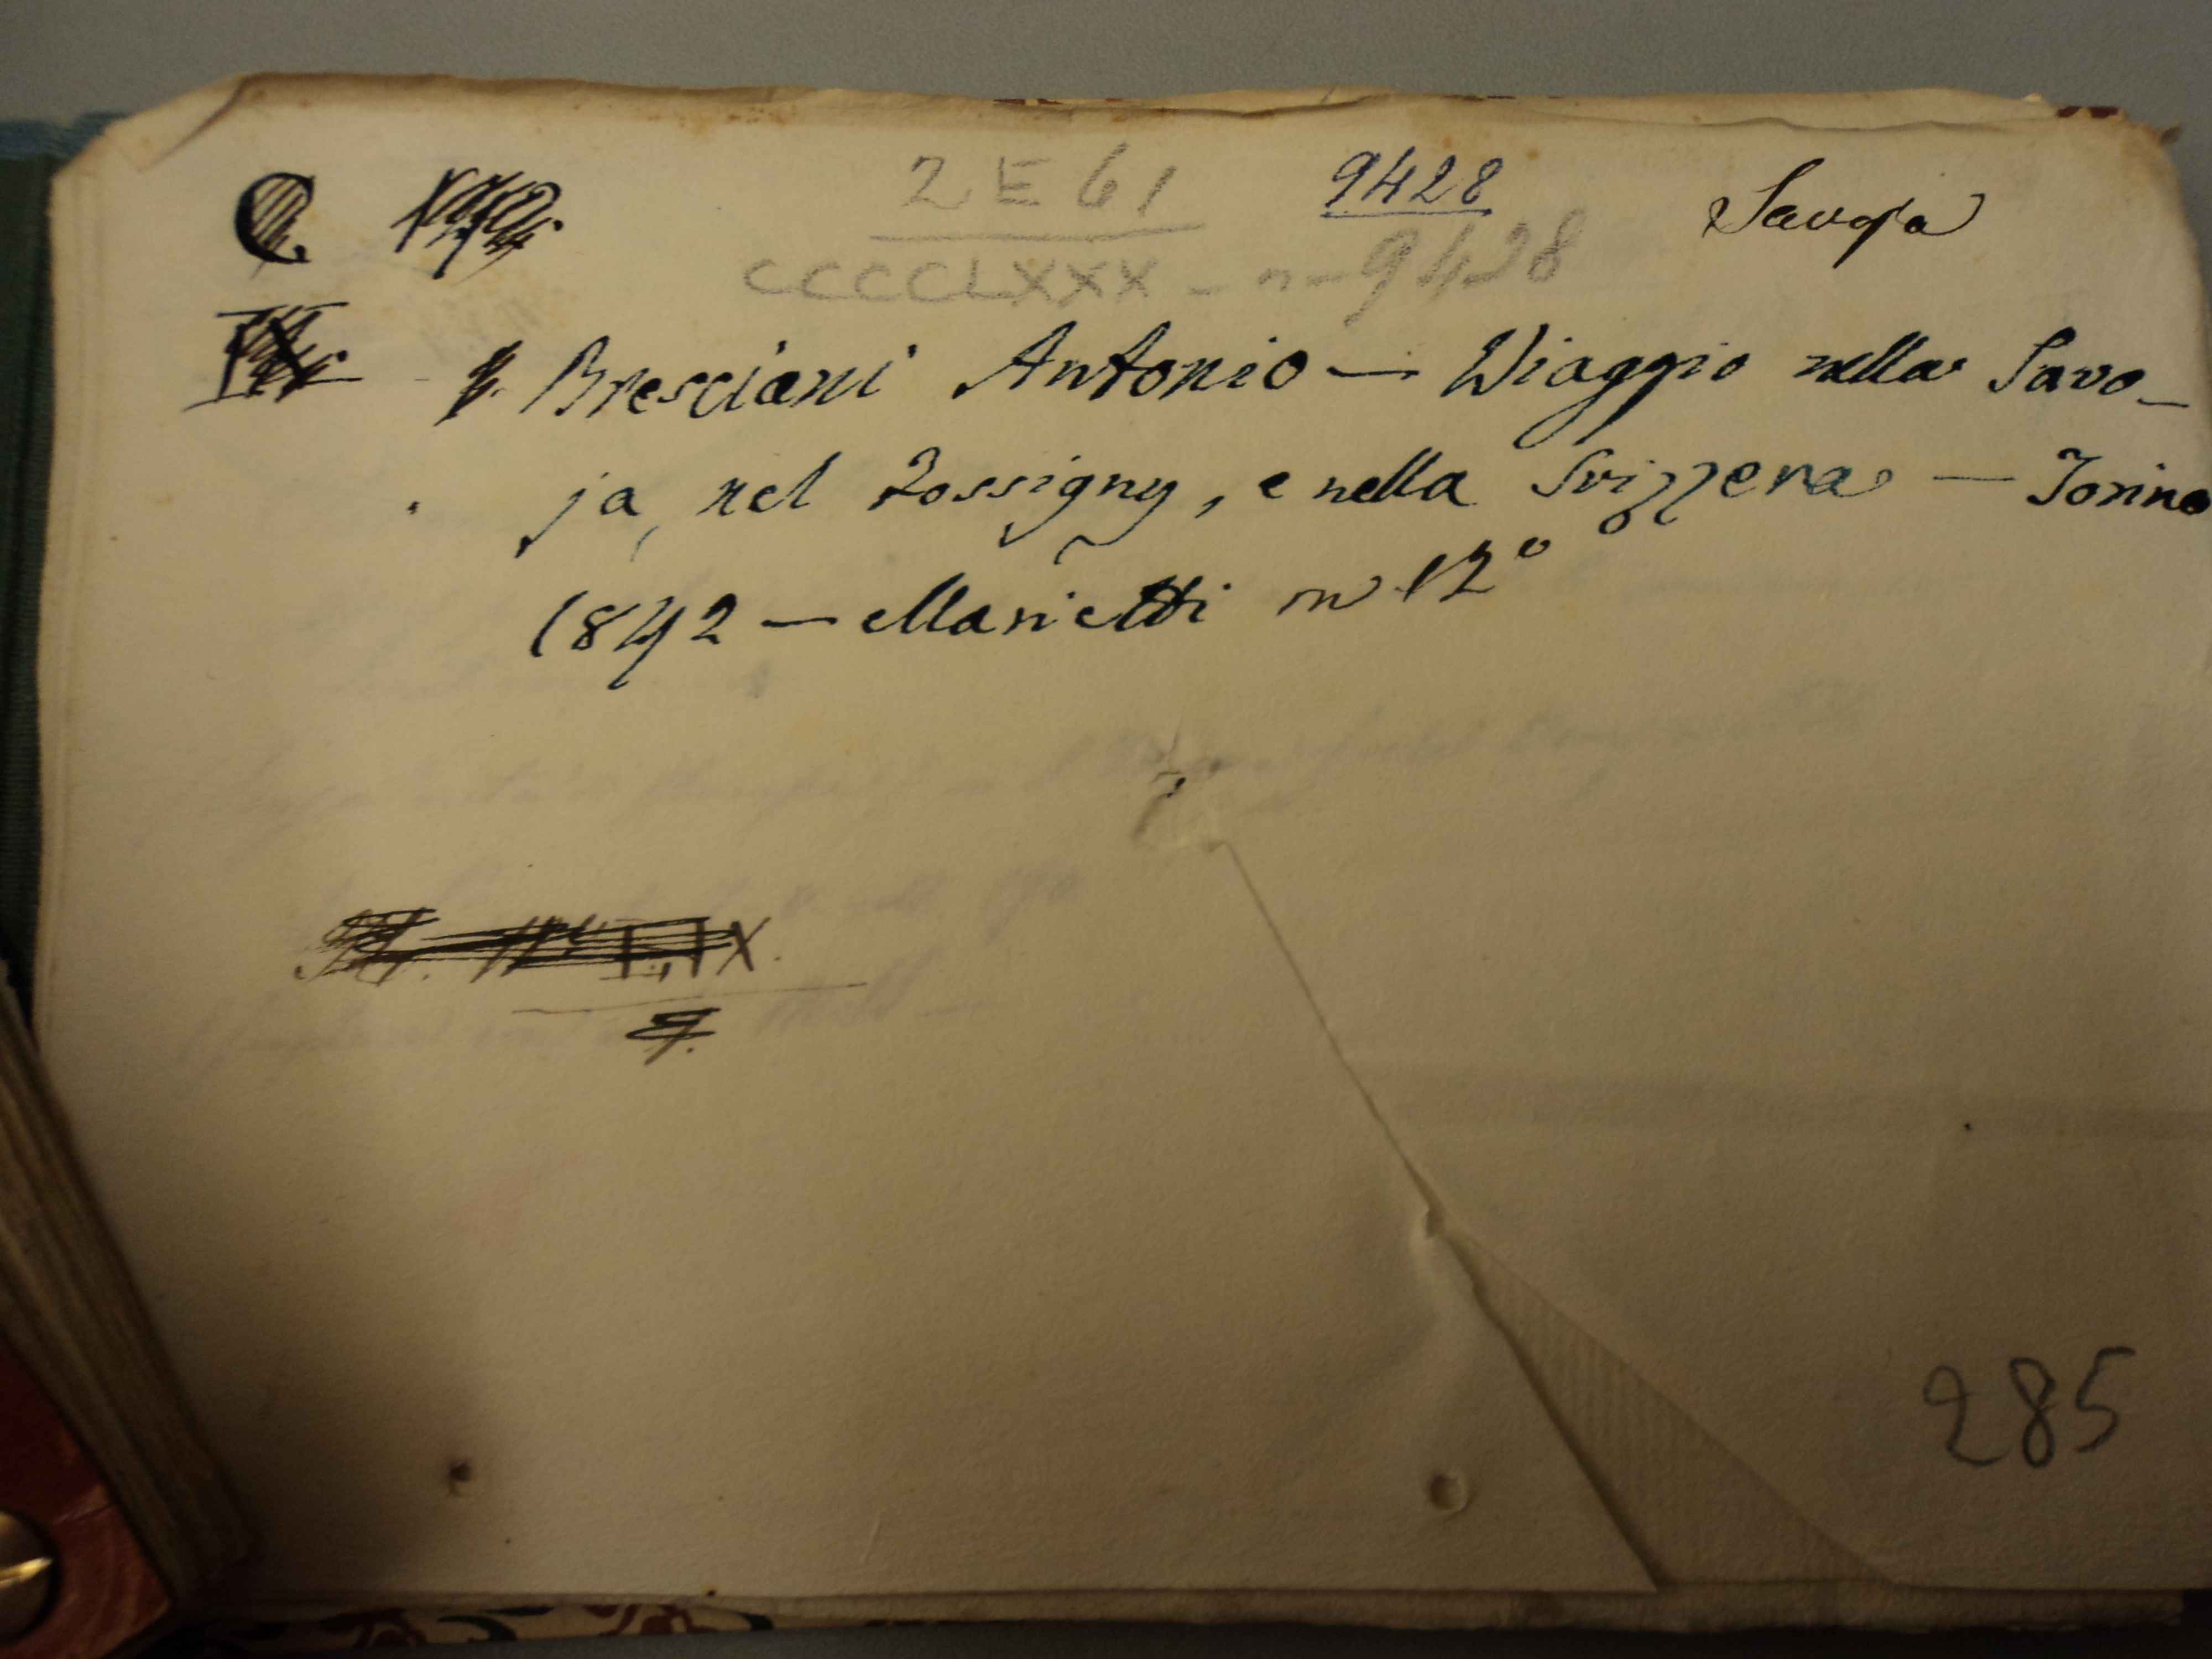 2 E 61
9428
Savoja
CCCCCLXXX - n - 9428
Bresciani Antonio — Viaggio nella Savo_
ja, nel Fossigny, e nella Svizzera — Torino
1842 — Marietti in 12°
LIX.
9.
285